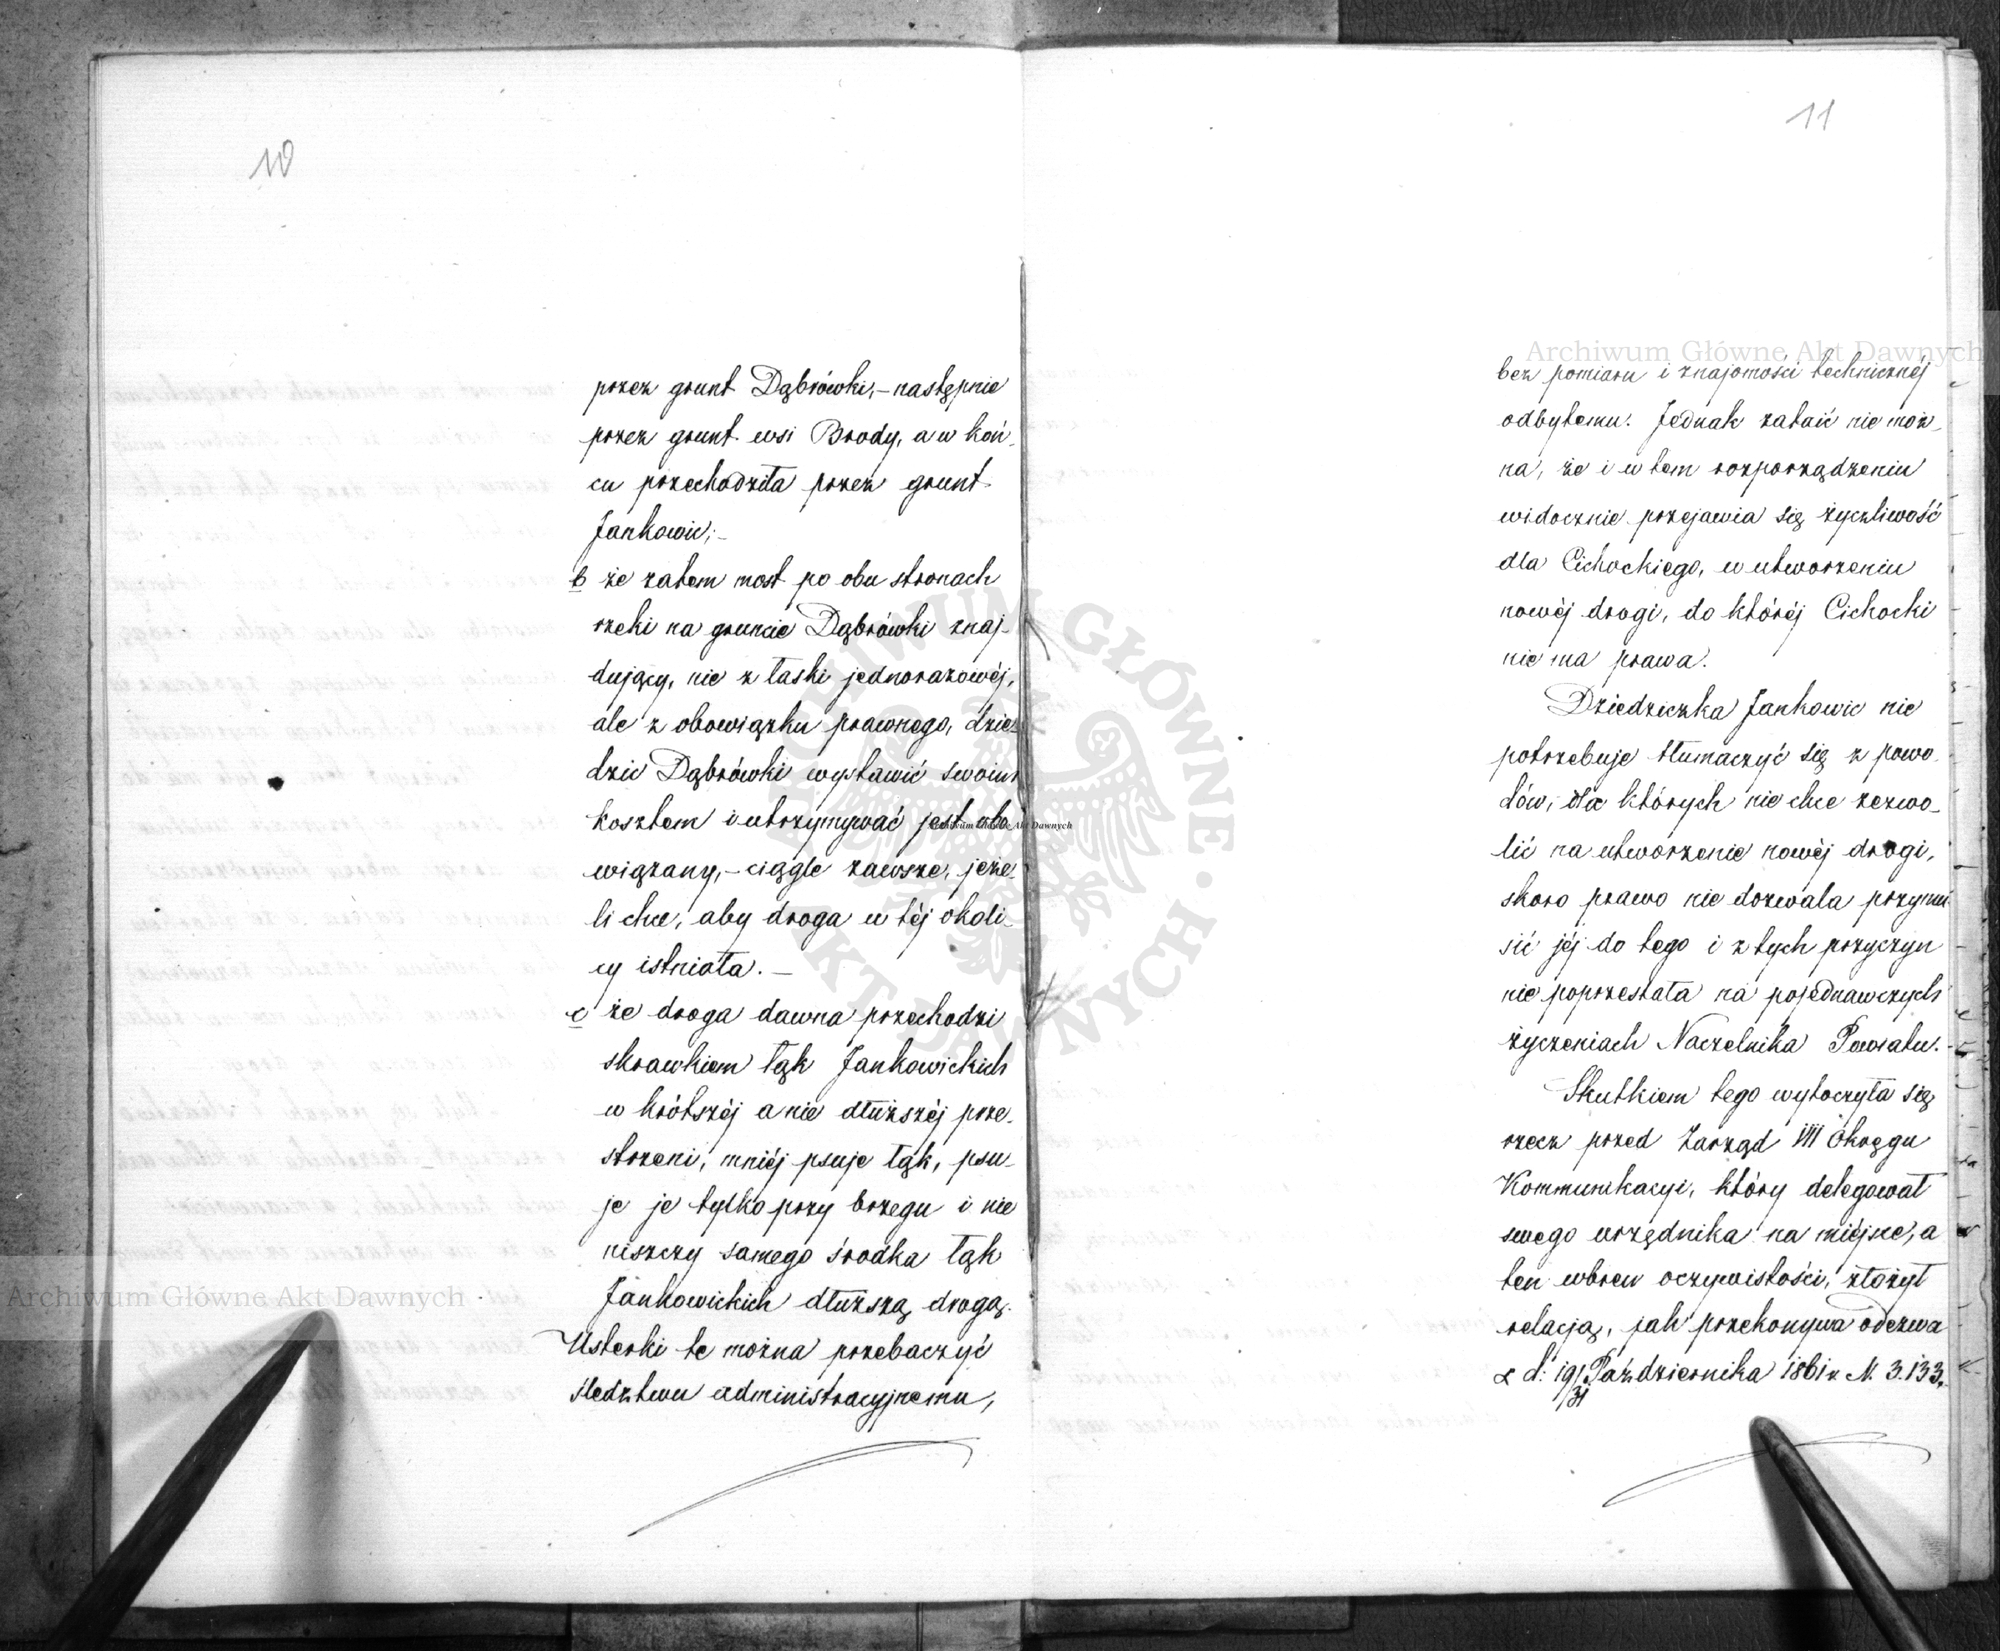 10
przez grunt Dąbrówki,– następnie
przez grunt wsi Brody, a w koń-
cu przechodziła przez grunt
Jankowic;–
b że zatem most po obu stronach
rzeki na gruncie Dąbrówki znaj-
dujący, nie z łaski jednorazowéj,
ale z obowiązku prawnego, dzie-
dzic Dąbrówki wystawić swoim
kosztem i utrzymywać jest obo-
wiązany,– ciągle zawsze, jeże-
li chce, aby droga w téj okoli-
cy istniała.–
c że droga dawna przechodzi
skrawkiem łąk Jankowickich
w krótszéj a nie dłuższéj prze-
strzeni, mniéj psuje łąk, psu-
je je tylko przy brzegu i nie
niszczy samego środka łąk
Jankowickich dłuższą drogą.
Usterki te można przebaczyć
śledztwu administracyjnemu,
11
bez pomiaru i znajomości technicznéj
odbytemu. Jednak zataić nie moż-
na, że i w tem rozporządzeniu
widocznie przejawia się życzliwość
dla Cichockiego, w utworzeniu
nowéj drogi, do któréj Cichocki
nie ma prawa.
Dziedziczka Jankowic nie
potrzebuje tłumaczyć się z powo-
dów, dla których nie chce zezwo-
lić na utworzenie nowéj drogi,
skoro prawo nie dozwala przymu
sić jéj do tego i z tych przyczyn
nie poprzestała na pojednawczych
życzeniach Naczelnika Powiatu.
Skutkiem tego wytoczyła się
rzecz przed Zarząd VIII Okręgu
Kommunikacyi, który delegował
swego urzędnika na miéjsce, a
ten wbrew oczywistości, złożył
relacją, jak przekonywa odezwa
z d: 19/31 Października 1861 r. N. 3.133.
Archiwum Główne Akt Dawnych
Archiwum Główne Akt Dawnych
Archiwum Główne Akt Dawnych
ARCHIWUM GŁÓWNE AKT DAWNYCH